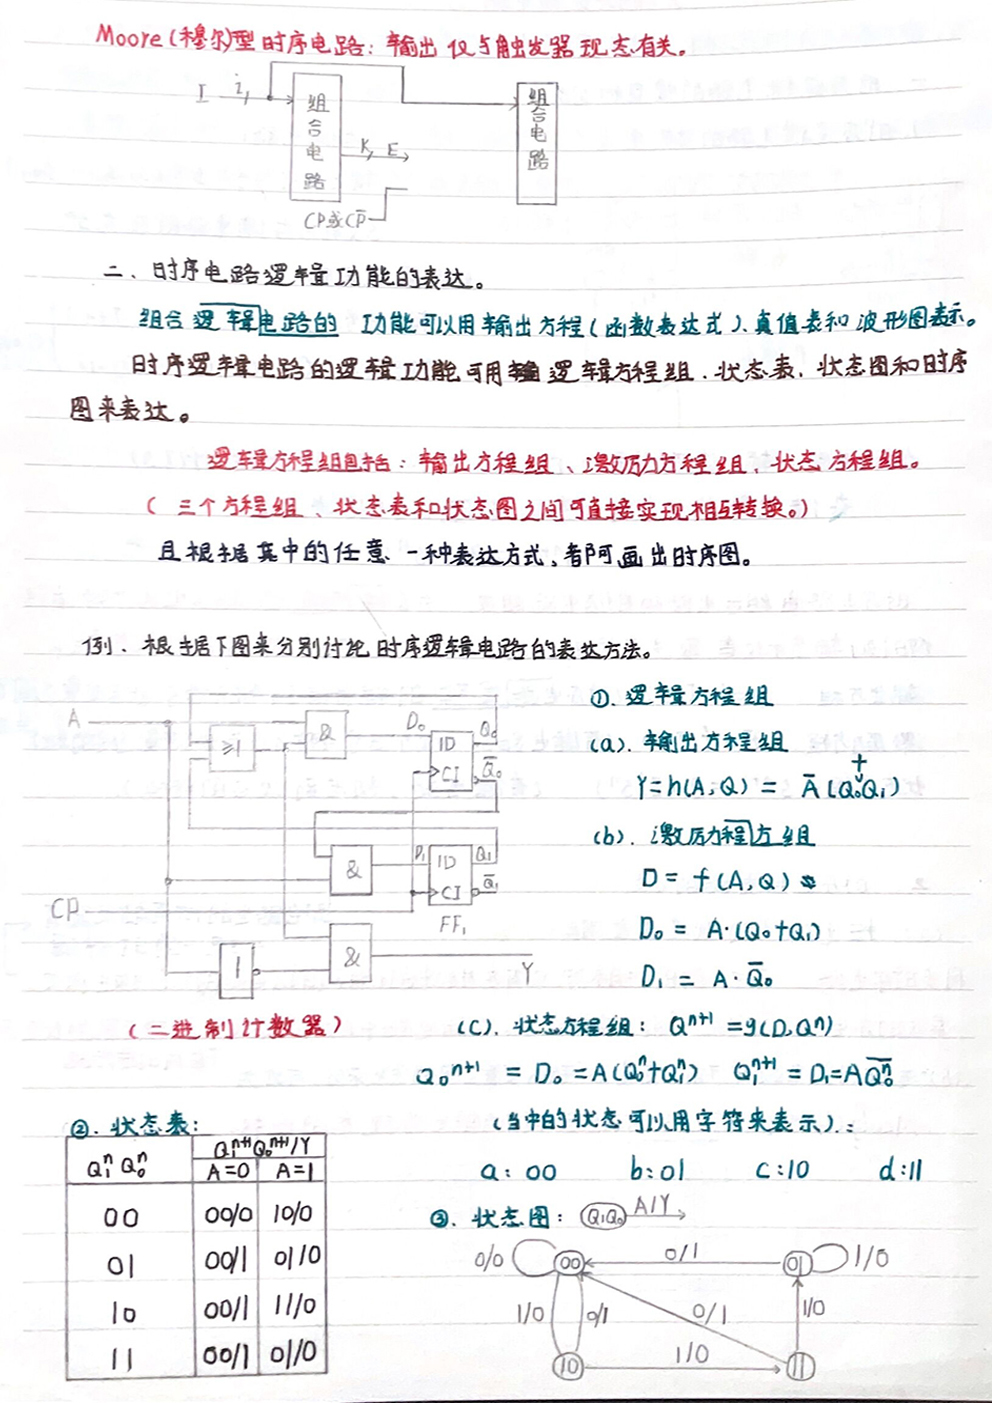 Moore(穆尔)型时序电路：输出仅与触发器现态有关。
I i,
组合电路
组合电路
K, E
CP或C̅P̅
二、时序电路逻辑功能的表达。
组合逻辑电路的 功能可以用输出方程(函数表达式)、真值表和波形图表示。
时序逻辑电路的逻辑功能可用逻辑方程组、状态表、状态图和时序
图来表达。
逻辑方程组包括：输出方程组、激励方程组、状态方程组。
(三个方程组、状态表和状态图之间可直接实现相互转换。)
且根据其中的任意一种表达方式，都可画出时序图。
例、根据下图来分别讨论时序逻辑电路的表达方法。
A
≥1
&
D₀ 1D Q₀
C1 Q̅₀
&
D₁ 1D Q₁
C1 Q̅₁
FF₁
CP
1
&
Y
(二进制计数器)
①. 逻辑方程组
(a). 输出方程组
Y=h(A,Q) = A̅(Q₀+Q₁)
(b). 激励程方组
D = f(A,Q)
D₀ = A·(Q₀+Q₁)
D₁ = A·Q̅₀
(C). 状态方程组：Qⁿ⁺¹ = g(D,Qⁿ)
Q₀ⁿ⁺¹ = D₀ = A(Q₀ⁿ+Q₁ⁿ) Q₁ⁿ⁺¹ = D₁ = AQ̅₀ⁿ
(当中的状态可以用字符来表示).：
a：00 b：01 c：10 d：11
②. 状态表：
Q₁ⁿQ₀ⁿ Q₁ⁿ⁺¹Q₀ⁿ⁺¹/Y
A=0 A=1
00 00/0 10/0
01 00/1 01/0
10 00/1 11/0
11 00/1 01/0
③. 状态图：Q₁Q₀ A/Y
0/0 00 0/1 01 1/0
1/0 0/1 0/1 1/0
10 1/0 11